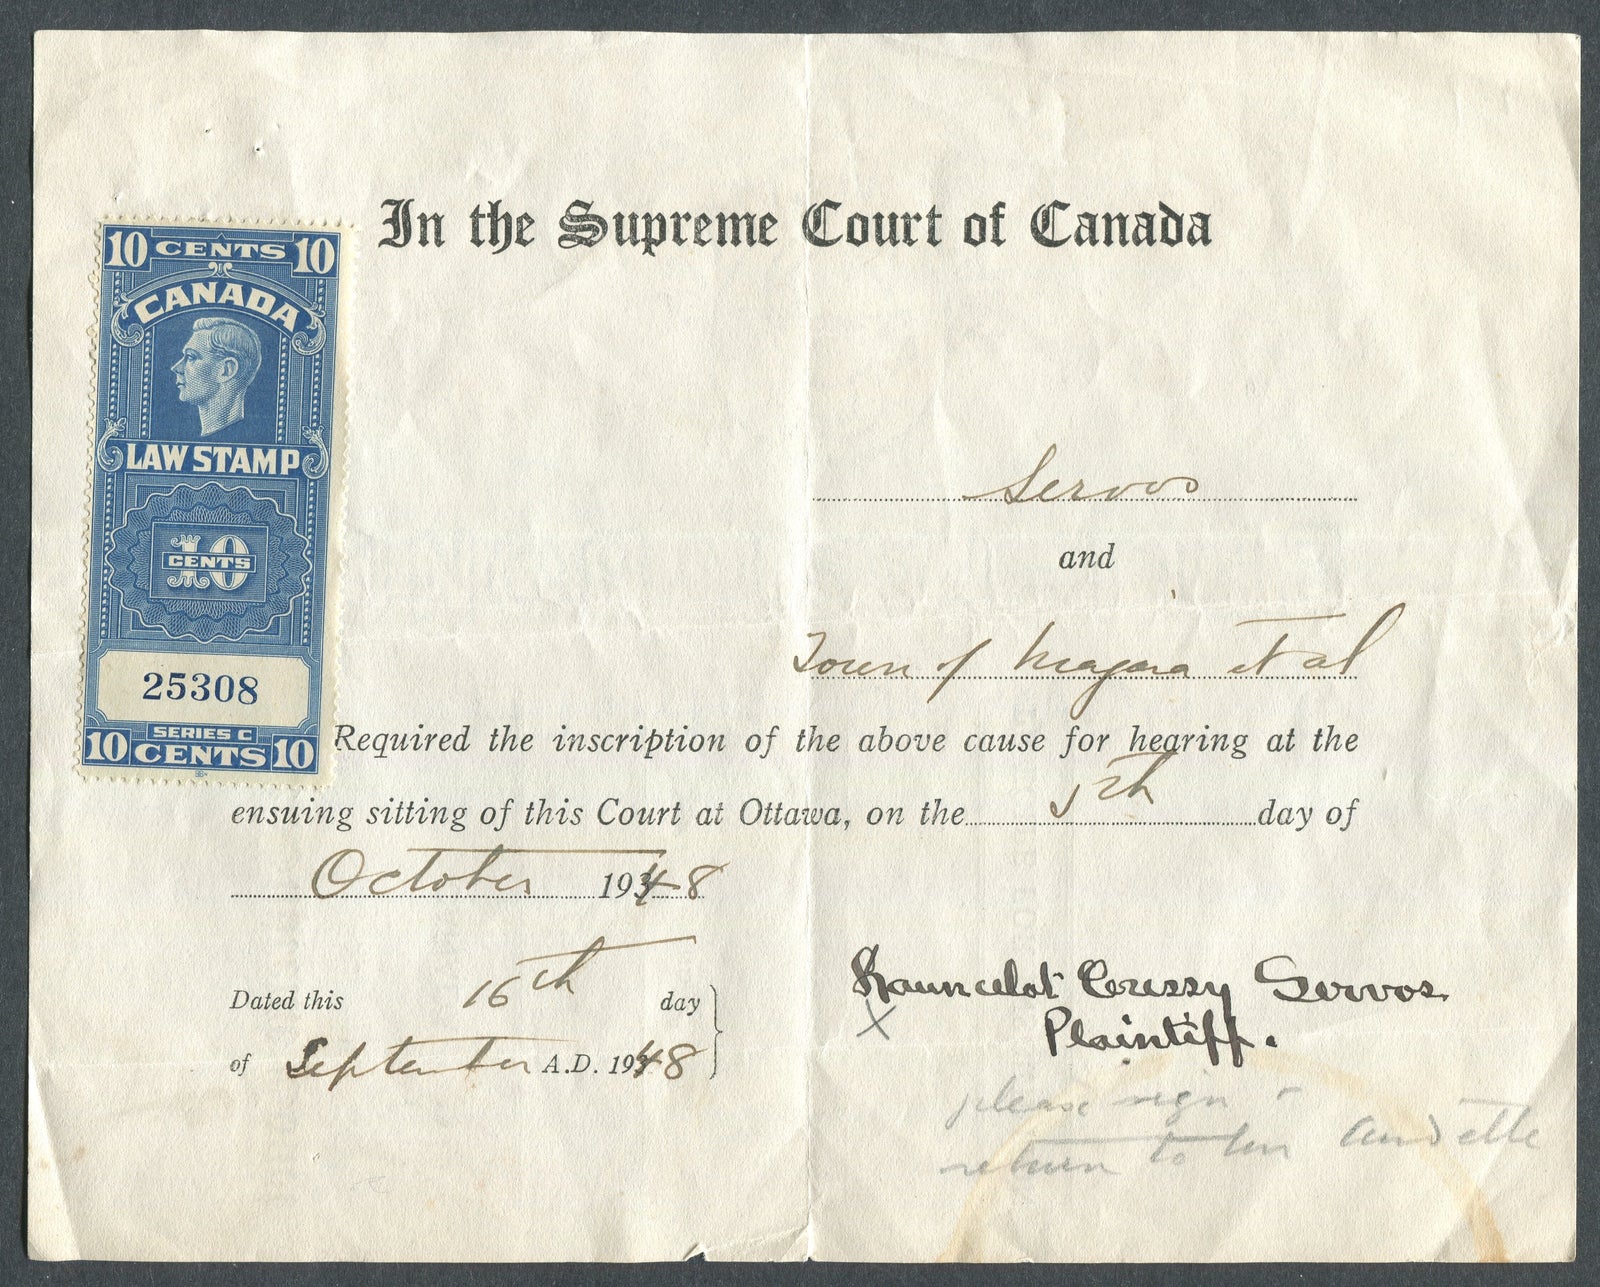 In the Supreme Court of Canada
10 CENTS 10
CANADA
LAW STAMP
10
CENTS
25308
SERIES C
10 CENTS 10
Servos
and
Town of Niagara et al
Required the inscription of the above cause for hearing at the
ensuing sitting of this Court at Ottawa, on the 5th day of
October 1948
Dated this 16th day
of September A.D. 1948
Launcelot Cressy Servos
Plaintiff.
X
please sign
return to